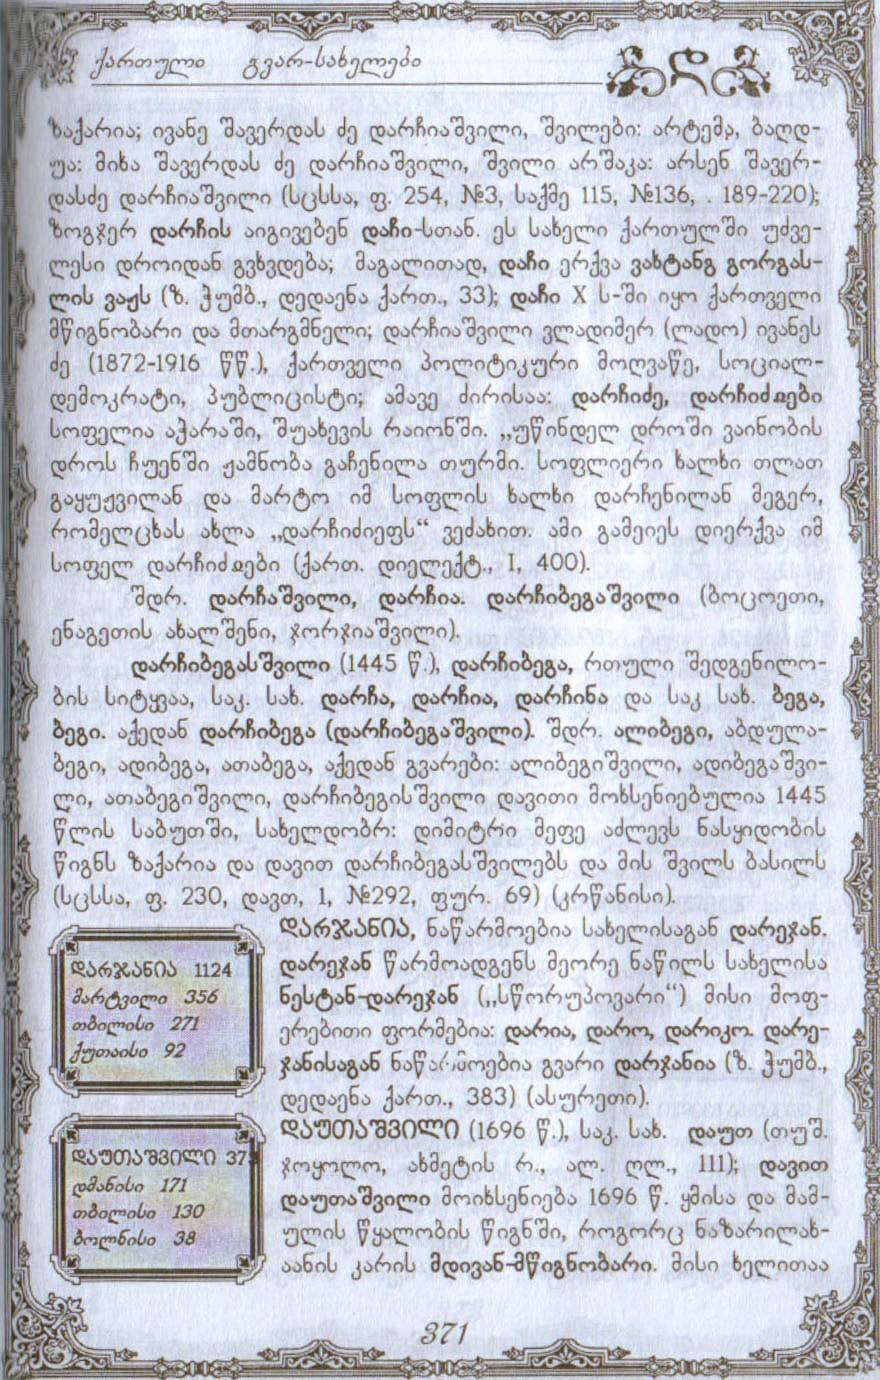 ქართული გვარ-სახელები
დ
ზაქარია; ივანე შავერდას ძე დარჩიაშვილი, შვილები: არტემა, ბაღდ-
უა: მიხა შავერდას ძე დარჩიაშვილი, შვილი არშაკა: არსენ შავერ-
დასძე დარჩიაშვილი (სცსსა, ფ. 254, №3, საქმე 115, №136, . 189-220);
ზოგჯერ დარჩის აიგივებენ დაჩი-სთან. ეს სახელი ქართულში უძვე-
ლესი დროიდან გვხვდება; მაგალითად, დაჩი ერქვა ვახტანგ გორგას-
ლის ვაჟს (ზ. ჭუმბ., დედაენა ქართ., 33); დაჩი X ს-ში იყო ქართველი
მწიგნობარი და მთარგმნელი; დარჩიაშვილი ვლადიმერ (ლადო) ივანეს
ძე (1872-1916 წწ.), ქართველი პოლიტიკური მოღვაწე, სოციალ-
დემოკრატი, პუბლიცისტი; ამავე ძირისაა: დარჩიძე, დარჩიძჲები
სოფელია აჭარაში, შუახევის რაიონში. „უწინდელ დროში ვაინობის
დროს ჩუენში ჟამნობა გაჩენილა თურმი. სოფლიერი ხალხი თლათ
გაყუჟვილან და მარტო იმ სოფლის ხალხი დარჩენილან მეგერ,
რომელცხას ახლა „დარჩიძიეფს“ ვეძახით. ამი გამეიეს დიერქვა იმ
სოფელ დარჩიძჲები (ქართ. დიელექტ., I, 400).
შდრ. დარჩაშვილი, დარჩია. დარჩიბეგაშვილი (ბოცოეთი,
ენაგეთის ახალშენი, ჯორჯიაშვილი).
დარჩიბეგასშვილი (1445 წ.), დარჩიბეგა, რთული შედგენილო-
ბის სიტყვაა, საკ. სახ. დარჩა, დარჩია, დარჩინა და საკ სახ. ბეგა,
ბეგი. აქედან დარჩიბეგა (დარჩიბეგაშვილი). შდრ. ალიბეგი, აბდულა-
ბეგი, ადიბეგა, ათაბეგა, აქედან გვარები: ალიბეგიშვილი, ადიბეგაშვი-
ლი, ათაბეგიშვილი, დარჩიბეგისშვილი დავითი მოხსენიებულია 1445
წლის საბუთში, სახელდობრ: დიმიტრი მეფე აძლევს ნასყიდობის
წიგნს ზაქარია და დავით დარჩიბეგასშვილებს და მის შვილს ბასილს
(სცსსა, ფ. 230, დავთ, 1, №292, ფურ. 69) (კრწანისი).
ᲓᲐᲠᲯᲐᲜᲘᲐ, ნაწარმოებია სახელისაგან დარეჯან.
დარეჯან წარმოადგენს მეორე ნაწილს სახელისა
ნესტან-დარეჯან („სწორუპოვარი“) მისი მოფ-
ერებითი ფორმებია: დარია, დარო, დარიკო. დარე-
ჯანისაგან ნაწარმოებია გვარი დარჯანია (ზ. ჭუმბ.,
დედაენა ქართ., 383) (ასურეთი).
ᲓᲐᲠᲯᲐᲜᲘᲐ 1124
მარტვილი 356
თბილისი 271
ქუთაისი 92
ᲓᲐᲣᲗᲐᲨᲕᲘᲚᲘ (1696 წ.), საკ. სახ. დაუთ (თუშ.
ჯოყოლო, ახმეტის რ., ალ. ღლ., 111); დავით
დაუთაშვილი მოიხსენიება 1696 წ. ყმისა და მამ-
ულის წყალობის წიგნში, როგორც ნაზარილახ-
აანის კარის მდივან-მწიგნობარი. მისი ხელითაა
ᲓᲐᲣᲗᲐᲨᲕᲘᲚᲘ 373
დმანისი 171
თბილისი 130
ბოლნისი 38
371